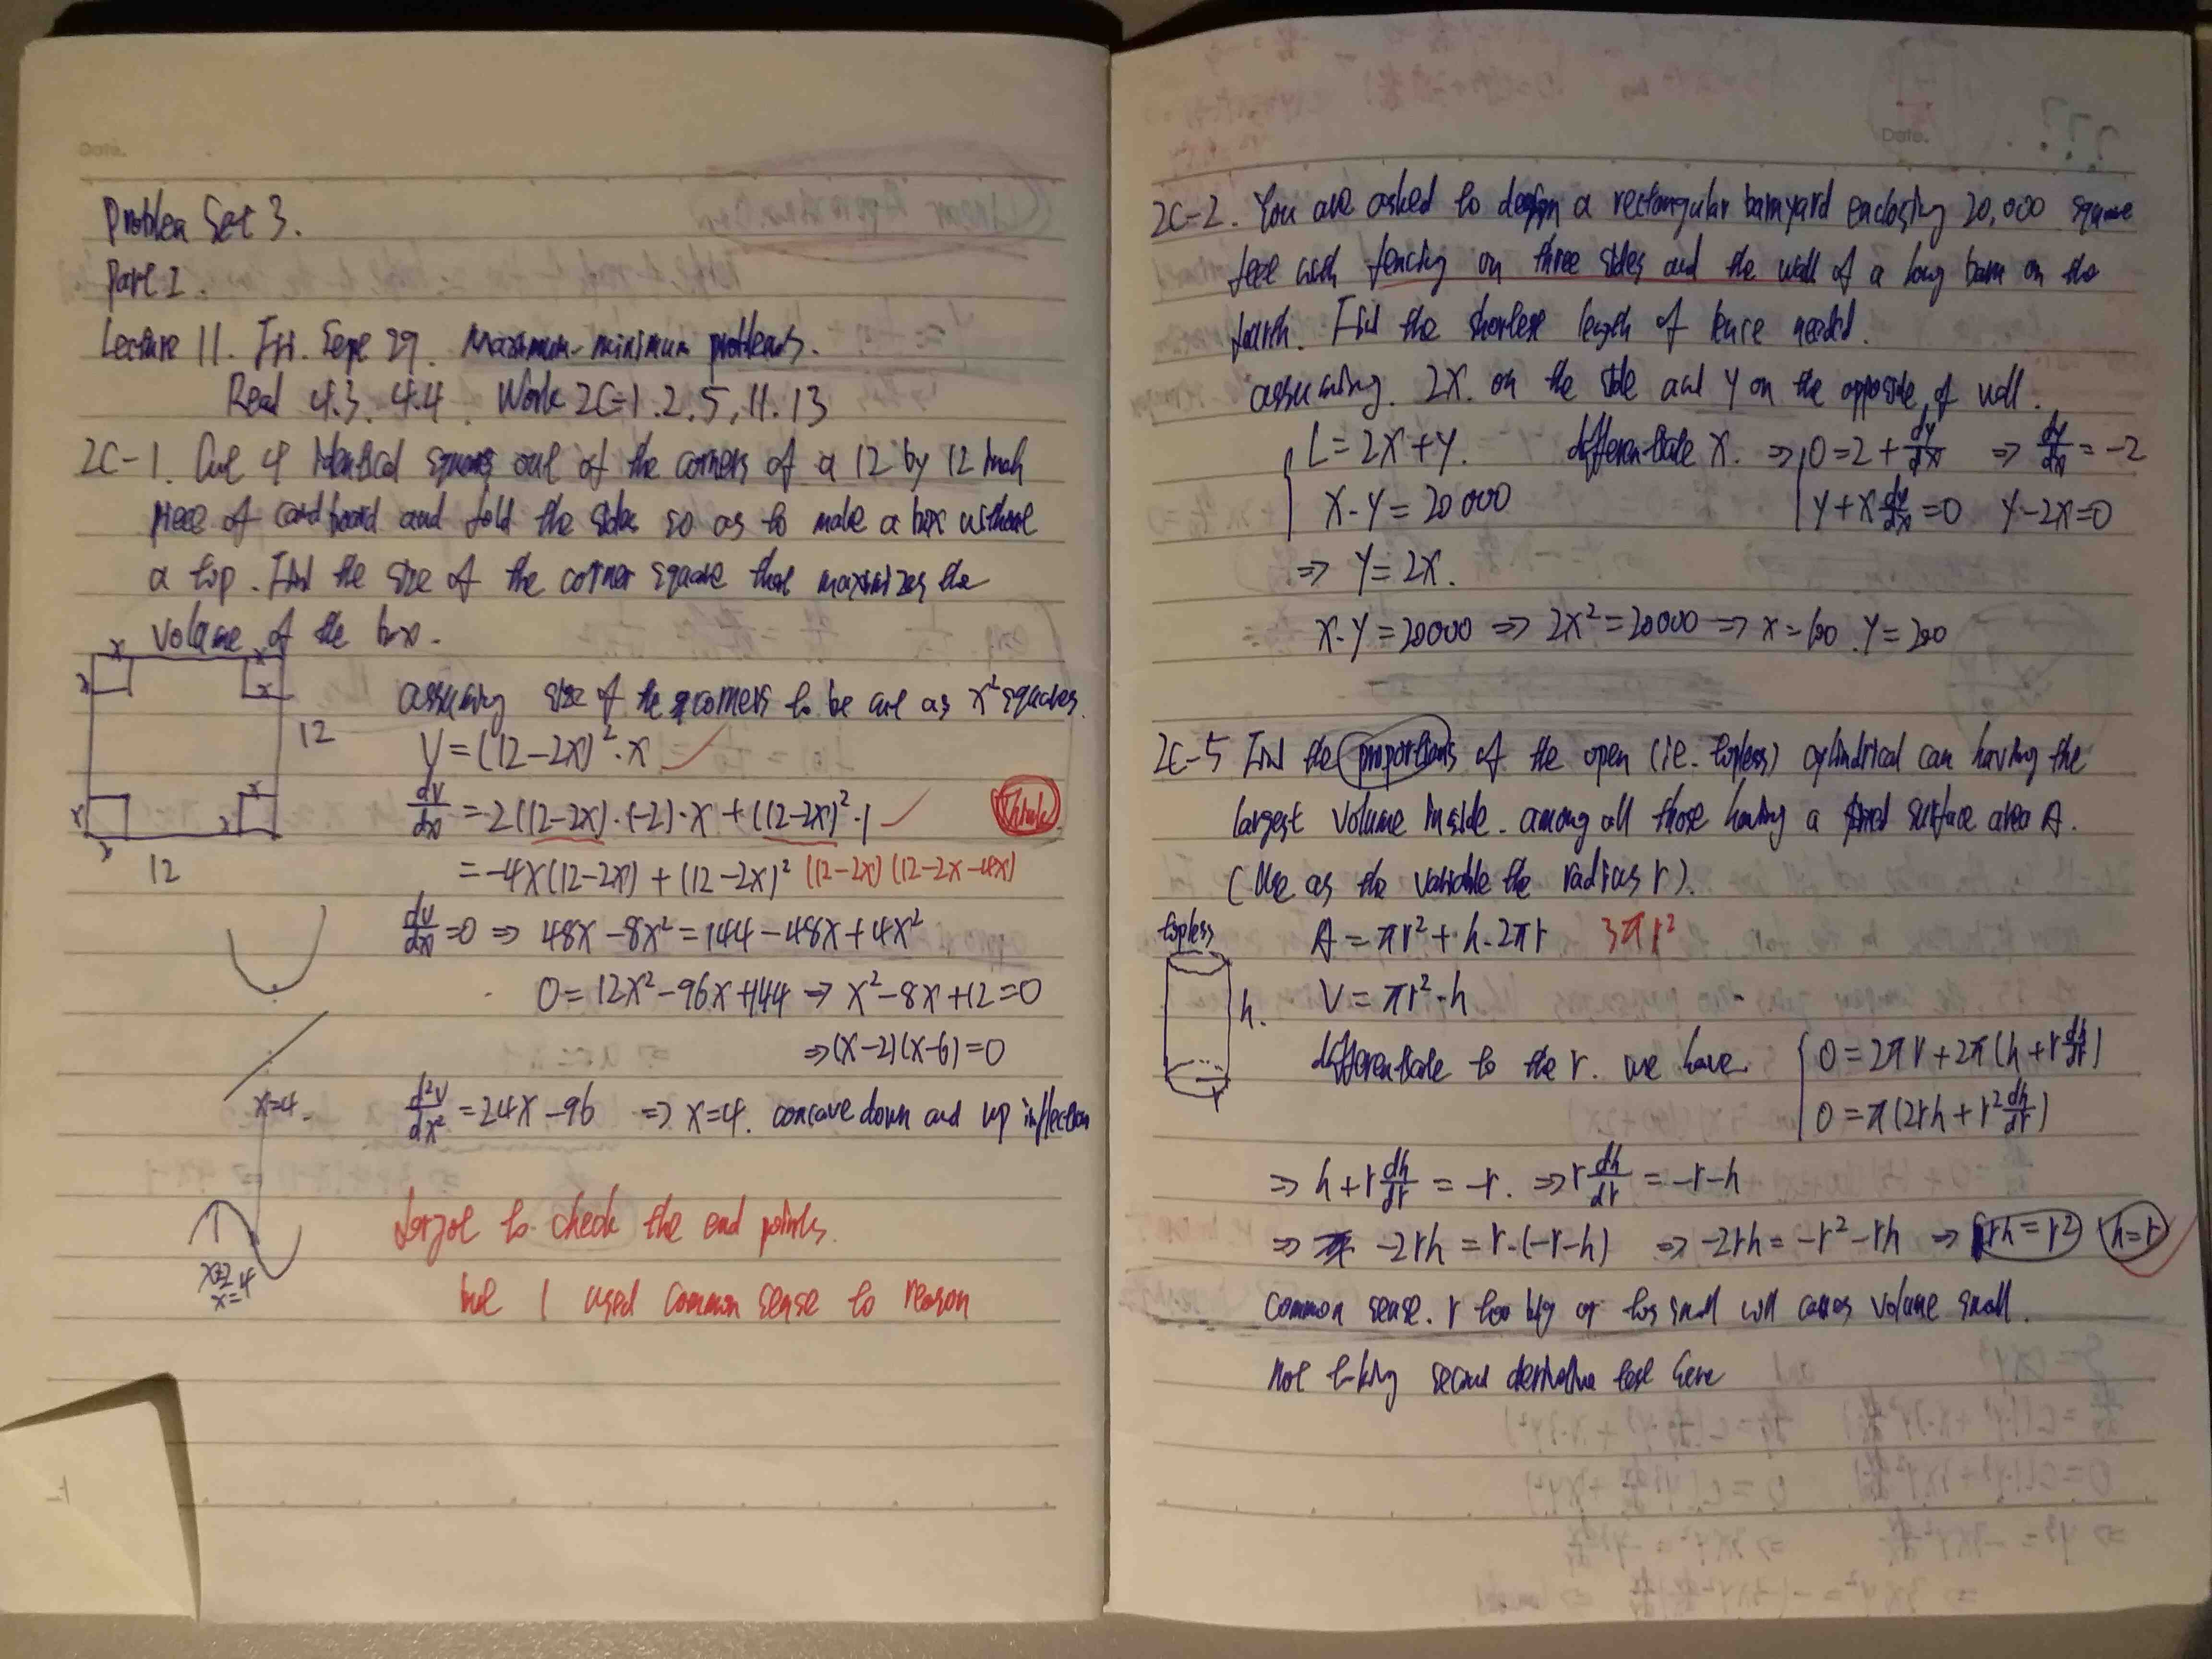 Date.
Problem Set 3.
Part I.
Lecture 11. Fri. Sept 29. Maximum-minimum problems.
Read 4.3. 4.4 Work 2C-1.2.5, 11.13
2C-1. Cut 4 identical squares out of the corners of a 12 by 12 inch
piece of cardboard and fold the sides so as to make a box without
a top. Find the size of the corner square that maximizes the
volume of the box.
x x
x x
12
x x
x x
12
assuming size of the corners to be cut as x² squares.
V = (12-2x)²·x
dv/dx = 2(12-2x)·(-2)·x + (12-2x)²·1
Think
= -4x(12-2x) + (12-2x)² (12-2x)(12-2x-4x)
dv/dx = 0 ⇒ 48x - 8x² = 144 - 48x + 4x²
0 = 12x² - 96x + 144 ⇒ x² - 8x + 12 = 0
⇒ (x-2)(x-6) = 0
x=4.
d²v/dx² = 24x - 96 ⇒ x=4. concave down and up inflection
x=2
x=4
forgot to check the end points.
but I used common sense to reason
Date.
2C-2. You are asked to design a rectangular barnyard enclosing 20,000 square
feet with fencing on three sides and the wall of a long barn on the
fourth. Find the shortest length of fence needed.
assuming. 2x. on the side and y on the opposite of wall.
L = 2x + y. differentiate x. ⇒ 0 = 2 + dy/dx ⇒ dy/dx = -2
x·y = 20000 y + x dy/dx = 0 y - 2x = 0
⇒ y = 2x.
x·y = 20000 ⇒ 2x² = 20000 ⇒ x = 100. y = 200
2C-5 Find the proportions of the open (i.e. topless) cylindrical can having the
largest volume inside. among all those having a fixed surface area A.
(Use as the variable the radius r).
topless
A = πr² + h·2πr 3πr²
V = πr²·h
h.
r
differentiate to the r. we have. 0 = 2πr + 2π(h + r dh/dr)
0 = π(2rh + r² dh/dr)
⇒ h + r dh/dr = -r. ⇒ r dh/dr = -r-h
⇒ -2rh = r·(-r-h) ⇒ -2rh = -r² - rh ⇒ rh = r² h=r
common sense. r too big or too small will causes volume small.
Not taking second derivative test here